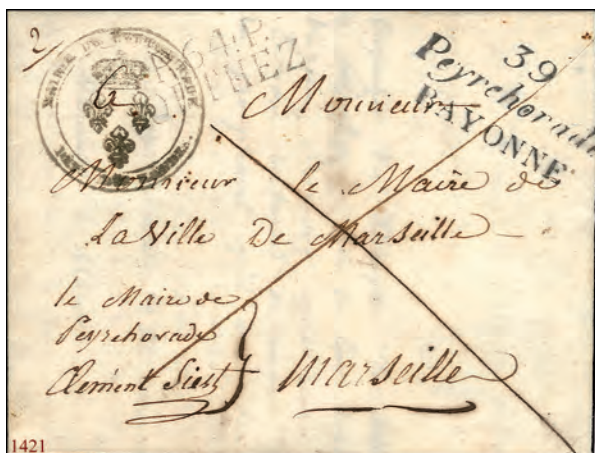 2/
MAIRIE DE PEYREHORADE
P.64.P.
ORTHEZ
39
Peyrehorade
BAYONNE
A Monsieur
Monsieur le Maire de
La Ville De Marseille
le Maire de
Peyrehorade
Clément Siest
Marseille
1421